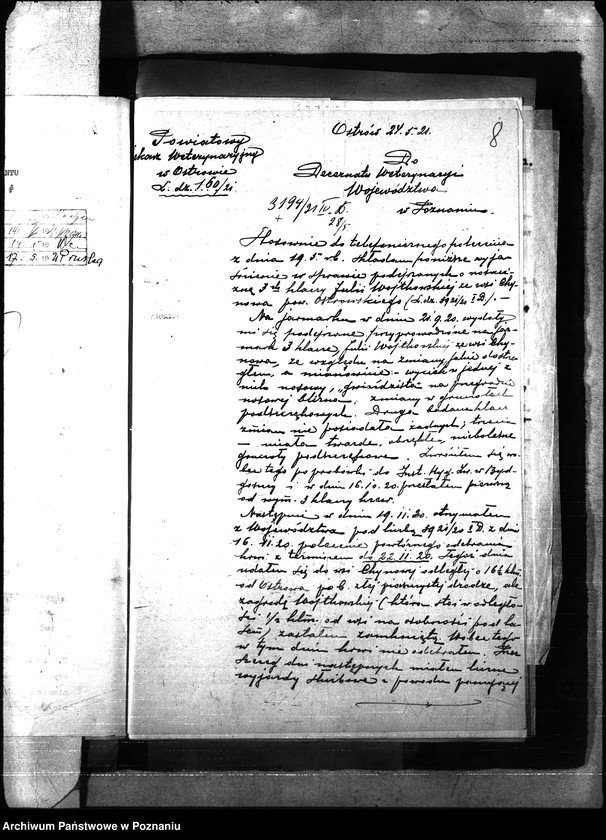 8
Ostrów 24.5.21.
Powiatowy
Lekarz Weterynaryjny
w Ostrowie
L. dz. 1.60/21
Do
Decernatu Weterynarji
Województwa
w Poznaniu.
3194/21 IV. D.
28/5
Stosownie do telefonicznego polecenia
z dnia 19.5. rb. składam poniższe wyja-
śnienie w sprawie podejrzanych o nosaci-
znę 3ch klaczy Julji Wojtkowskiej ze wsi Chy-
nowa pow. Ostrowskiego (L. dz. 8921/20 I D.). -
Na jarmarku w dniu 21.9.20. wydały
mi się podejrzane przyprowadzone na jar-
mark 3 klacze, Julji Wojtkowskiej ze wsi Chy-
nowa, ze względu na zmiany, jakie dostrze-
głem, a mianowicie - wyciek u jednej z
nich nosowy, "gwiaździsta" na przegrodzie
nosowej blizna, zmiany w gruczołach
podszczękowych. Druga badana klacz
zmian nie posiadała żadnych; trzecia
- miała twarde, obrzękłe, niebolesne
gruczoły podszczękowe. Zwróciłem się wo-
bec tego po probówki do Inst. Hyg. Zw. w Byd-
goszczy i w dniu 16.10.20. przesłałem pierwszą
od wym. 3 klaczy krew.
Następnie w dniu 19.11.20. otrzymałem
z Województwa pod liczbą 8921/20 I D. z dnia
16.11.20. polecenie powtórnego odebrania
krwi z terminem do 22.11.20. Tegoż dnia
udałem się do wsi Chynowy odległej o 16½ klm.
od Ostrowa po b. złej piaszczystej drodze, ale
zagrodę Wojtkowskiej (która stoi w odległo-
ści ½ klm. od wsi na osobności pod la-
sem) zastałem zamkniętą. Wobec tego
w tym dniu krwi nie odebrałem. Przez
szereg dni następnych miałem liczne
wyjazdy służbowe z powodu panującej
Archiwum Państwowe w Poznaniu